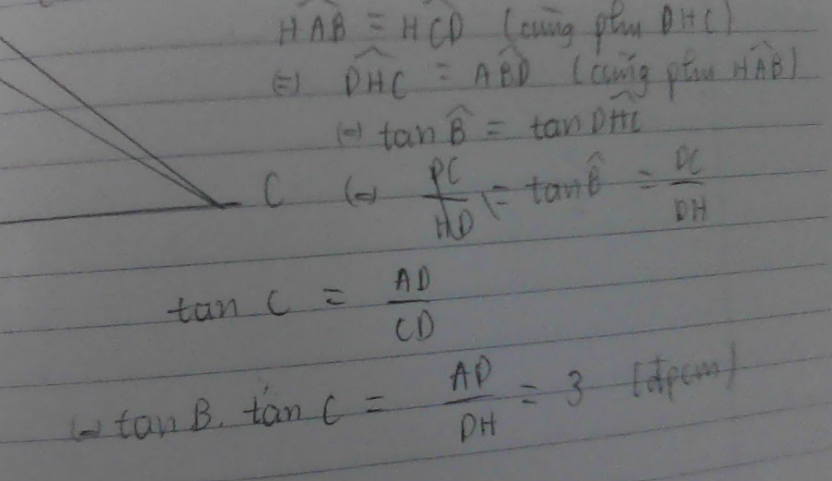 HAB = HCD (cùng phụ DHC)
(=) DHC = ABD (cùng phụ HAB)
(=) tan B = tan DHC
C (=) DC/HD = tan B = DC/DH
tan C = AD/CD
(=) tan B. tan C = AD/DH = 3 (đpcm)